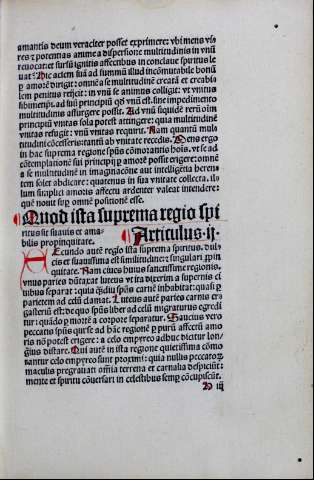 amantis deum veraciter posset exprimere: vbi mens vis
res ⁊ potentias anime a dispersione multitudinis in vnū
reuocat: et sursū ignitis affectibus in conclaue spiritus le
uat. Hic aciem suā ad summū illud incōmutabile bonū
⁊ amorē dirigit: omnē a se multitudinē creatā et creabi
lem penitus reijcit: in vnū se animus colligit: vt vnitus
sibimetipsi. ad suū principiū qđ vnū est. sine impedimento
multitudinis assurgere possit. Ad vnū siquidē rerū oīm
principiū vnitas sola potest attingere: quia multitudinē
vnitas refugit: vnū vnitas requirit. Nam quantū mul
titudini cōcesseris: tantū ab vnitate recedis. Mens ergo
in hac suprema regione spūs cōmorantis hoīs. vt se ad
cōtemplationē sui principij ⁊ amorē possit erigere: omnē
a se multitudinē in imaginacōne aut intelligētia heren
tem solet abdicare: quatenus in sua vnitate collecta. il
lum simplici amoris affectu ardenter valeat intendere:
quē nouit sup omnē positionē esse.
Quod ista suprema regio spi
ritus sit suauis et ama-
bilis propinquitate. Articulus .ij.
Secundo autē regio ista suprema spiritus. dul
cis et suauissima est similitudine: ⁊ singulari ppin
quitate. Nam ciues huius sanctissime regionis.
vnius paries dūtaxat luteus vt ita dixerim a supernis ci
uibus separat: quia qđam spūs carnē inhabitat: quasi ⁊
parietem ad celū damat. Luteus autē paries carnis er
gasteriū est: de quo spūs liber ad celū migraturus egredi
tur: quādo ⁊ mortē a corpore separatur. Saucius vero
peccatis spūs qui se ad hāc regionē ⁊ purū affectū amo
ris nō potest erigere: a celo empyreo adhuc dicitur lon-
gius distare. Qui autē in ista regione quietissima cōmo
rantur celo empyreo sunt proximi: quia nullis peccatorum
maculis pregrauati oīmia terrena et carnalia despiciūt:
mente et spiritu cōuersari in celestibus semp cōcupiscūt.